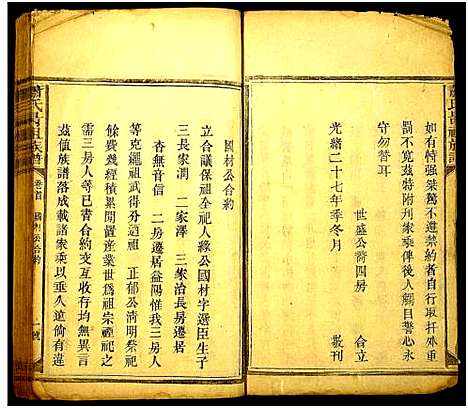 如有恃强桀驁不遵禁約者自行取扞外重
罰不寬茲特附列家乘俾後人觸目警心永
守勿替耳
世盛公裔四房 合立
光緒二十七年季冬月 敬刊
國材公合約
立合議保祖全祀人緣公國材字選臣生子
三長家潤 二家澤 三家治長房遷居
杳無音信 二房遷居益陽惟我三房人
等克繩祖武得分逎祖 正郁公清明祭祀
餘費幾經積累開置產業世爲祖宗禋祀之
需三房人等已書合約交互收存均無異言
茲值族譜落成載諸家乘以垂久遠倘有違
氏 祖族譜
卷首 國材公合約